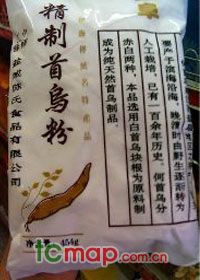 要产于滨海沿海，晚清时由野生逐渐转为
人工栽培，已有一百余年历史。何首乌分
赤白两种，本品选用白首乌块根为原料制
成为纯天然首乌制品。
精制首乌粉
陈氏食品有限公司
454g
tcmap.com.cn